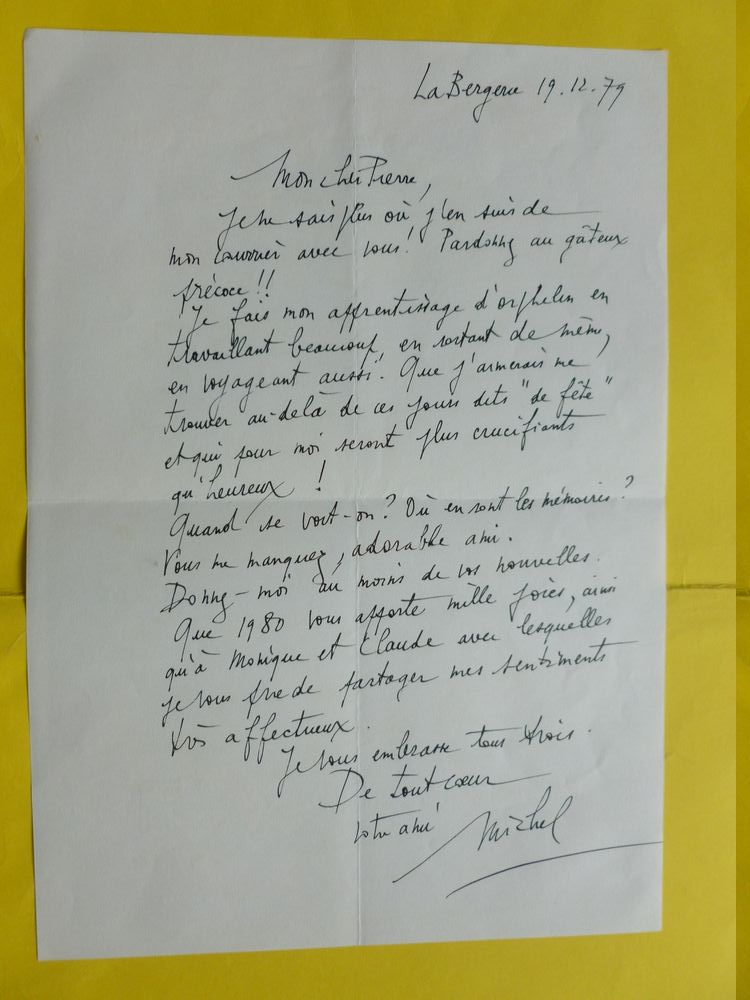 La Bergerie 19.12.79
Mon cher Pierre,
Je ne sais plus où j'en suis de
mon courrier avec vous! Pardonnez au gâteux
précoce!!
Je fais mon apprentissage d'orphelin en
travaillant beaucoup, en sortant de même,
en voyageant aussi! Que j'aimerais me
trouver au-delà de ces jours dits "de fête"
et qui pour moi seront plus crucifiants
qu'heureux !
Quand se voit-on? Où en sont les mémoires?
Vous me manquez, adorable ami.
Donnez-moi au moins de vos nouvelles.
Que 1980 vous apporte mille joies, ainsi
qu'à Monique et Claude avec lesquelles
je vous prie de partager mes sentiments
très affectueux.
Je vous embrasse tous trois.
De tout cœur
votre ami
Michel